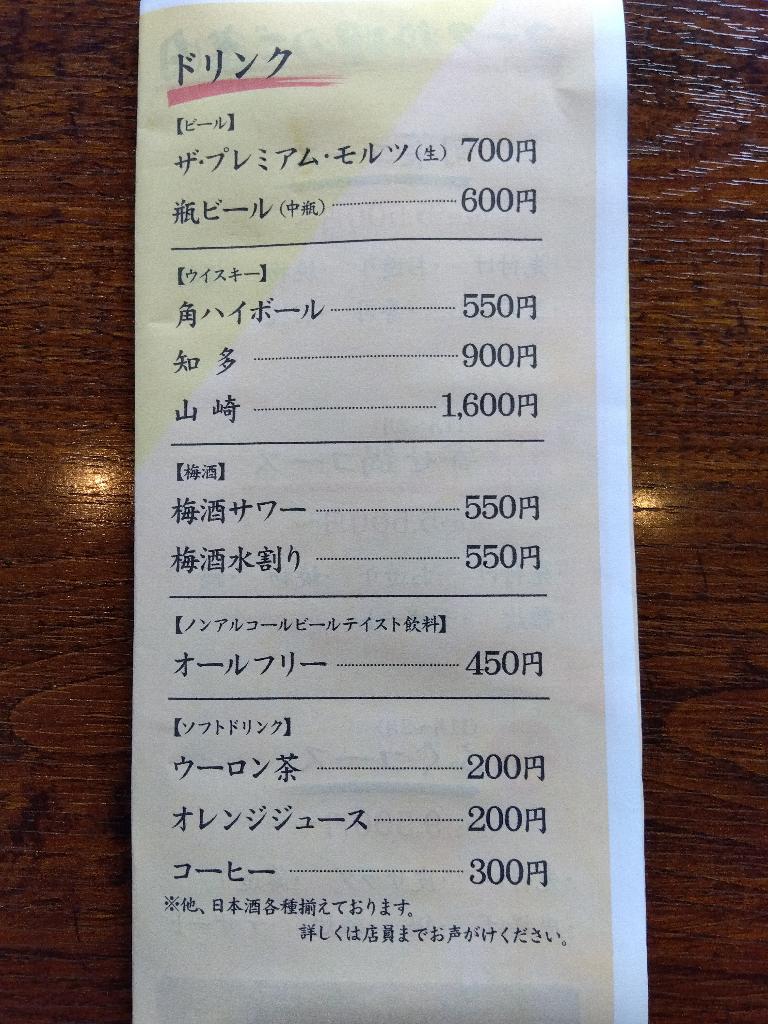 ドリンク
【ビール】
ザ・プレミアム・モルツ(生) 700円
瓶ビール(中瓶) 600円
【ウイスキー】
角ハイボール 550円
知多 900円
山崎 1,600円
【梅酒】
梅酒サワー 550円
梅酒水割り 550円
【ノンアルコールビールテイスト飲料】
オールフリー 450円
【ソフトドリンク】
ウーロン茶 200円
オレンジジュース 200円
コーヒー 300円
※他、日本酒各種揃えております。
詳しくは店員までお声がけください。